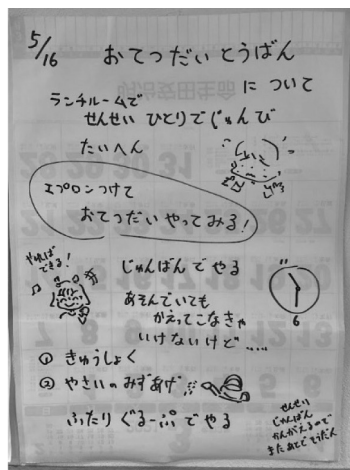 5/16
おてつだいとうばん
について
ランチルームで
せんせい ひとりでじゅんび
たいへん
エプロンつけて
おてつだいやってみる!
やれば
できる!
じゅんばんでやる
11
6
あそんでいても
かえってこなきゃ
いけないけど.....
① きゅうしょく
② やさいのみずあげ
ふたりぐるーぷでやる
せんせい
じゅんばん
かんがえるので
またあとどうだん